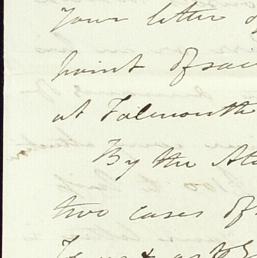 Your letter
point of sai
at Falmouth
By the Ala
two cases of